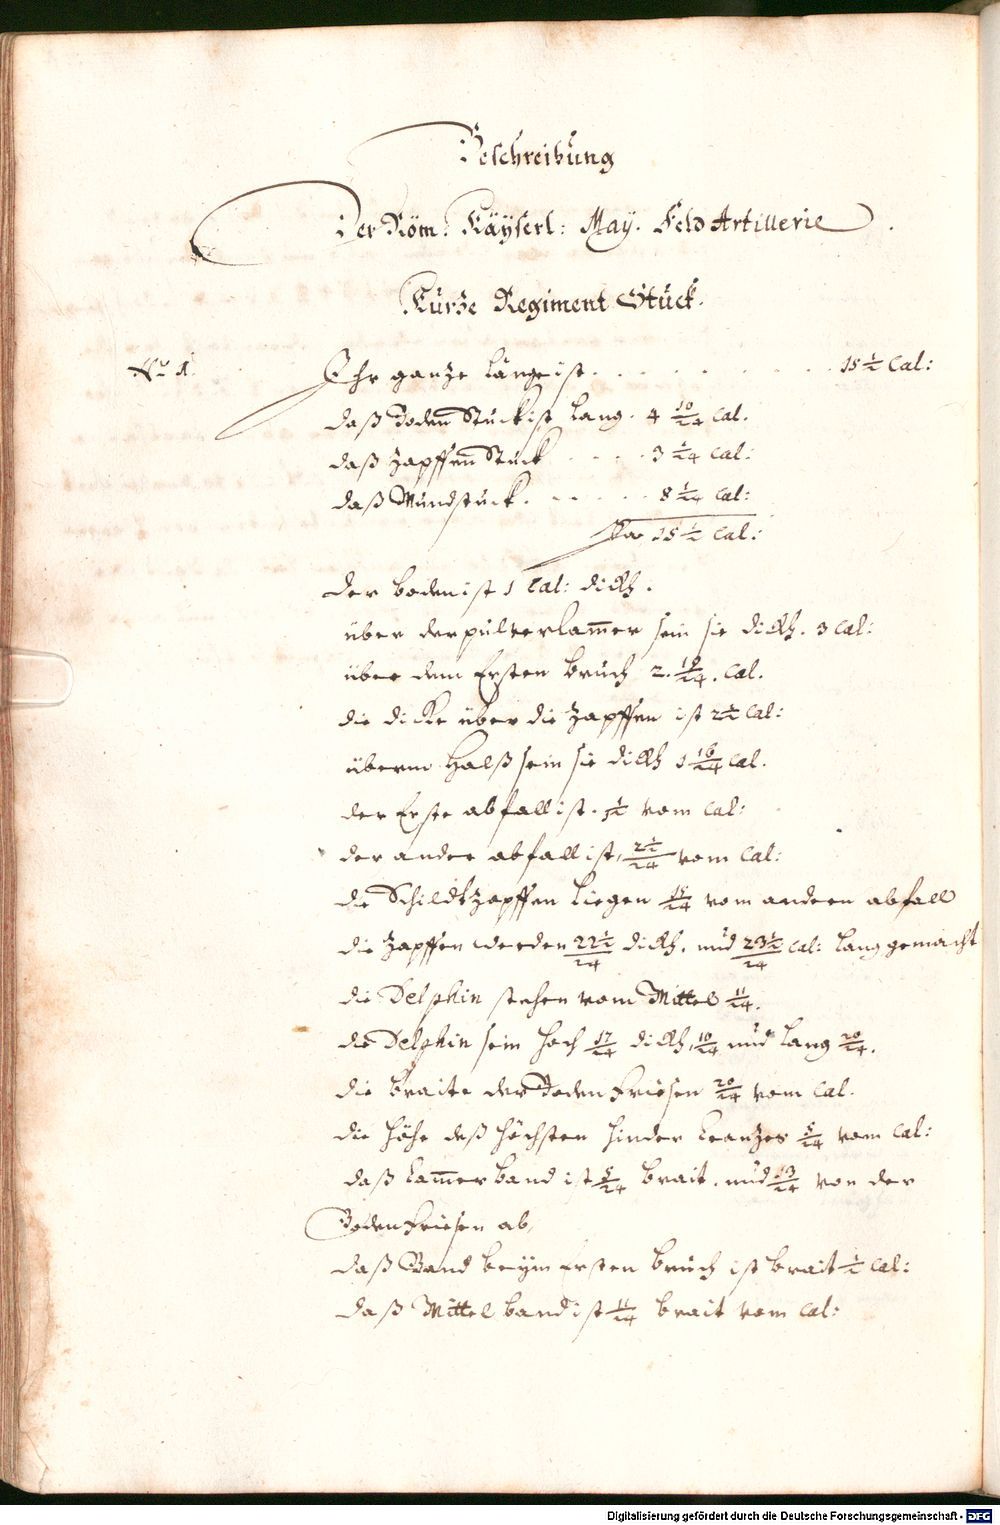 Beschreibung
Der Röm: Käyserl: May. Feld Artillerie.
Kurtze Regiment Stuck.
No 1. Ihr gantze Länge ist . . . . . . . . . 15 1/2 Cal:
daß Boden Stuck ist lang. 4 10/24 Cal.
daß Zapffen Stuck . . . . 3 1/24 Cal:
daß Mundstuck . . . . . 8 1/24 Cal:
Sa 15 1/2 Cal:
der boden ist 1 Cal: dickh.
über der pulverkam̄er sein sie dickh. 3 Cal:
über dem Ersten bruch 2. 10/24. Cal.
die dicke über die Zapffen ist 2 1/4 Cal:
überm Halß sein sie dickh 1 16/24 Cal.
der Erste abfall ist. vom Cal:
der ander abfall ist, 2 1/2/24 vom Cal:
die Schildtzapffen liegen 15/24 vom andern abfall
die Zapffen werden 22 1/2/24 dickh. und 23 1/2/24 Cal: lang gemacht
die Delphin stehen vom Mittel 11/24.
die Delphin sein hoch 17/24 dickh, 10/24 und lang 20/24.
die braite der Boden Friesen 20/24 vom Cal.
die Höhe deß Höchsten hinder Krantzes 5/24 vom Cal:
daß Kam̄erband ist 5/24 brait. und 13/24 von der
Boden Friesen ab,
daß Band beym Ersten bruch ist brait 1/2 Cal:
daß Mittel band ist 11/24 brait vom Cal:
Digitalisierung gefördert durch die Deutsche Forschungsgemeinschaft - DFG